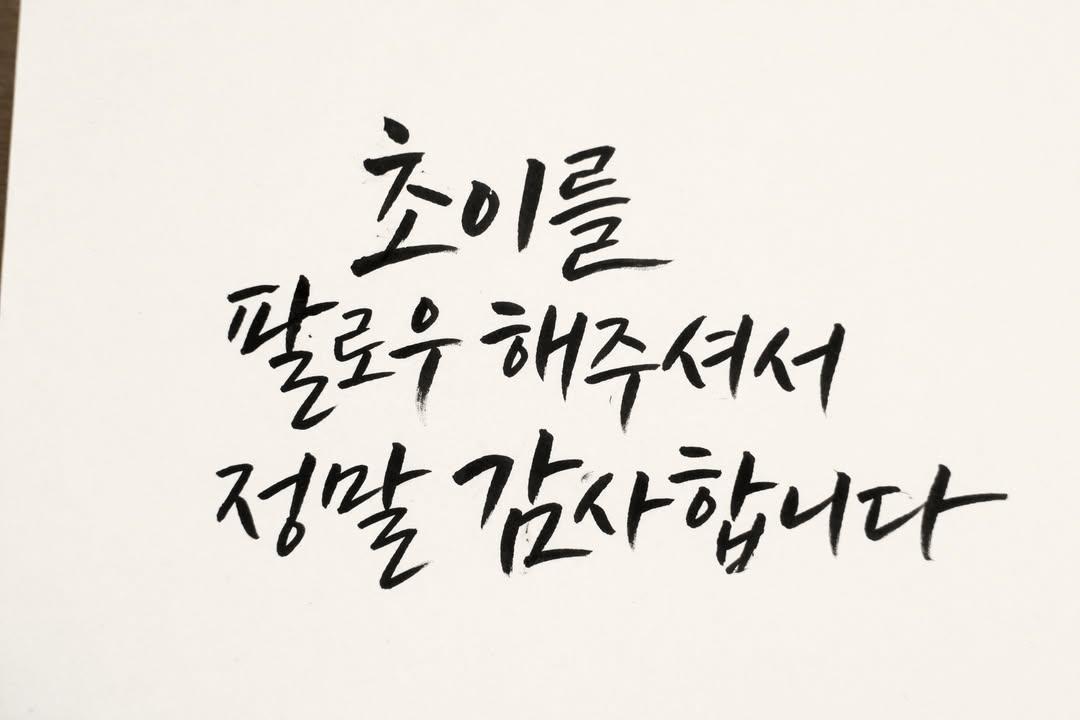 초이를
팔로우 해주셔서
정말 감사합니다